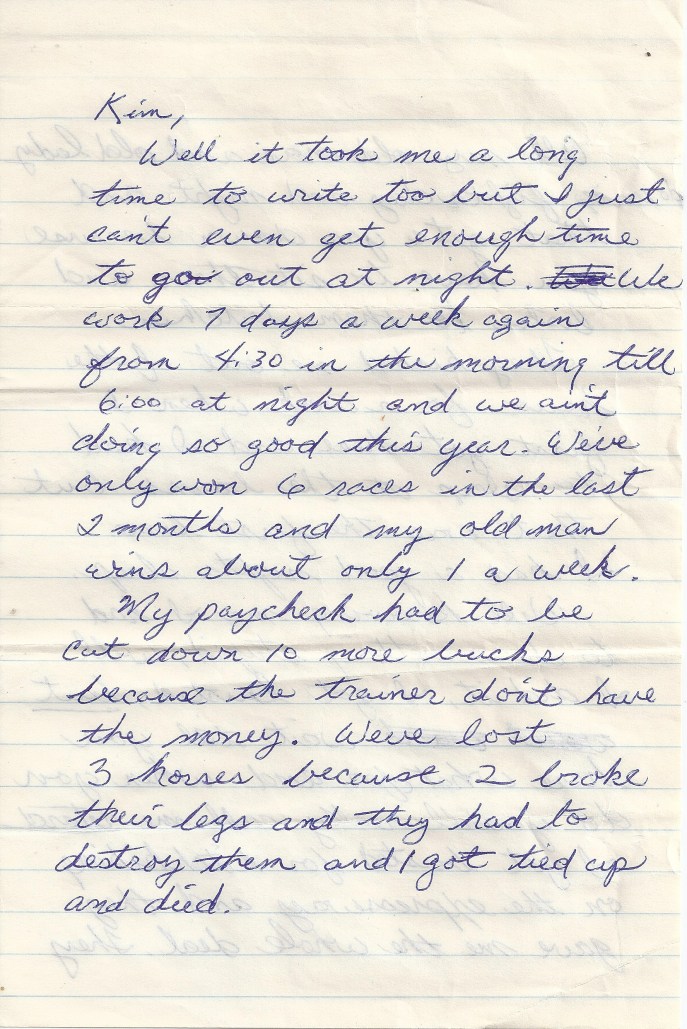 Kim,
Well it took me a long
time to write too but I just
can't even get enough time
to go out at night. We
work 7 days a week again
from 4:30 in the morning till
6:00 at night and we ain't
doing so good this year. We've
only won 6 races in the last
2 months and my old man
wins about only 1 a week.
My paycheck had to be
cut down 10 more bucks
because the trainer don't have
the money. We've lost
3 horses because 2 broke
their legs and they had to
destroy them and 1 got tied up
and died.